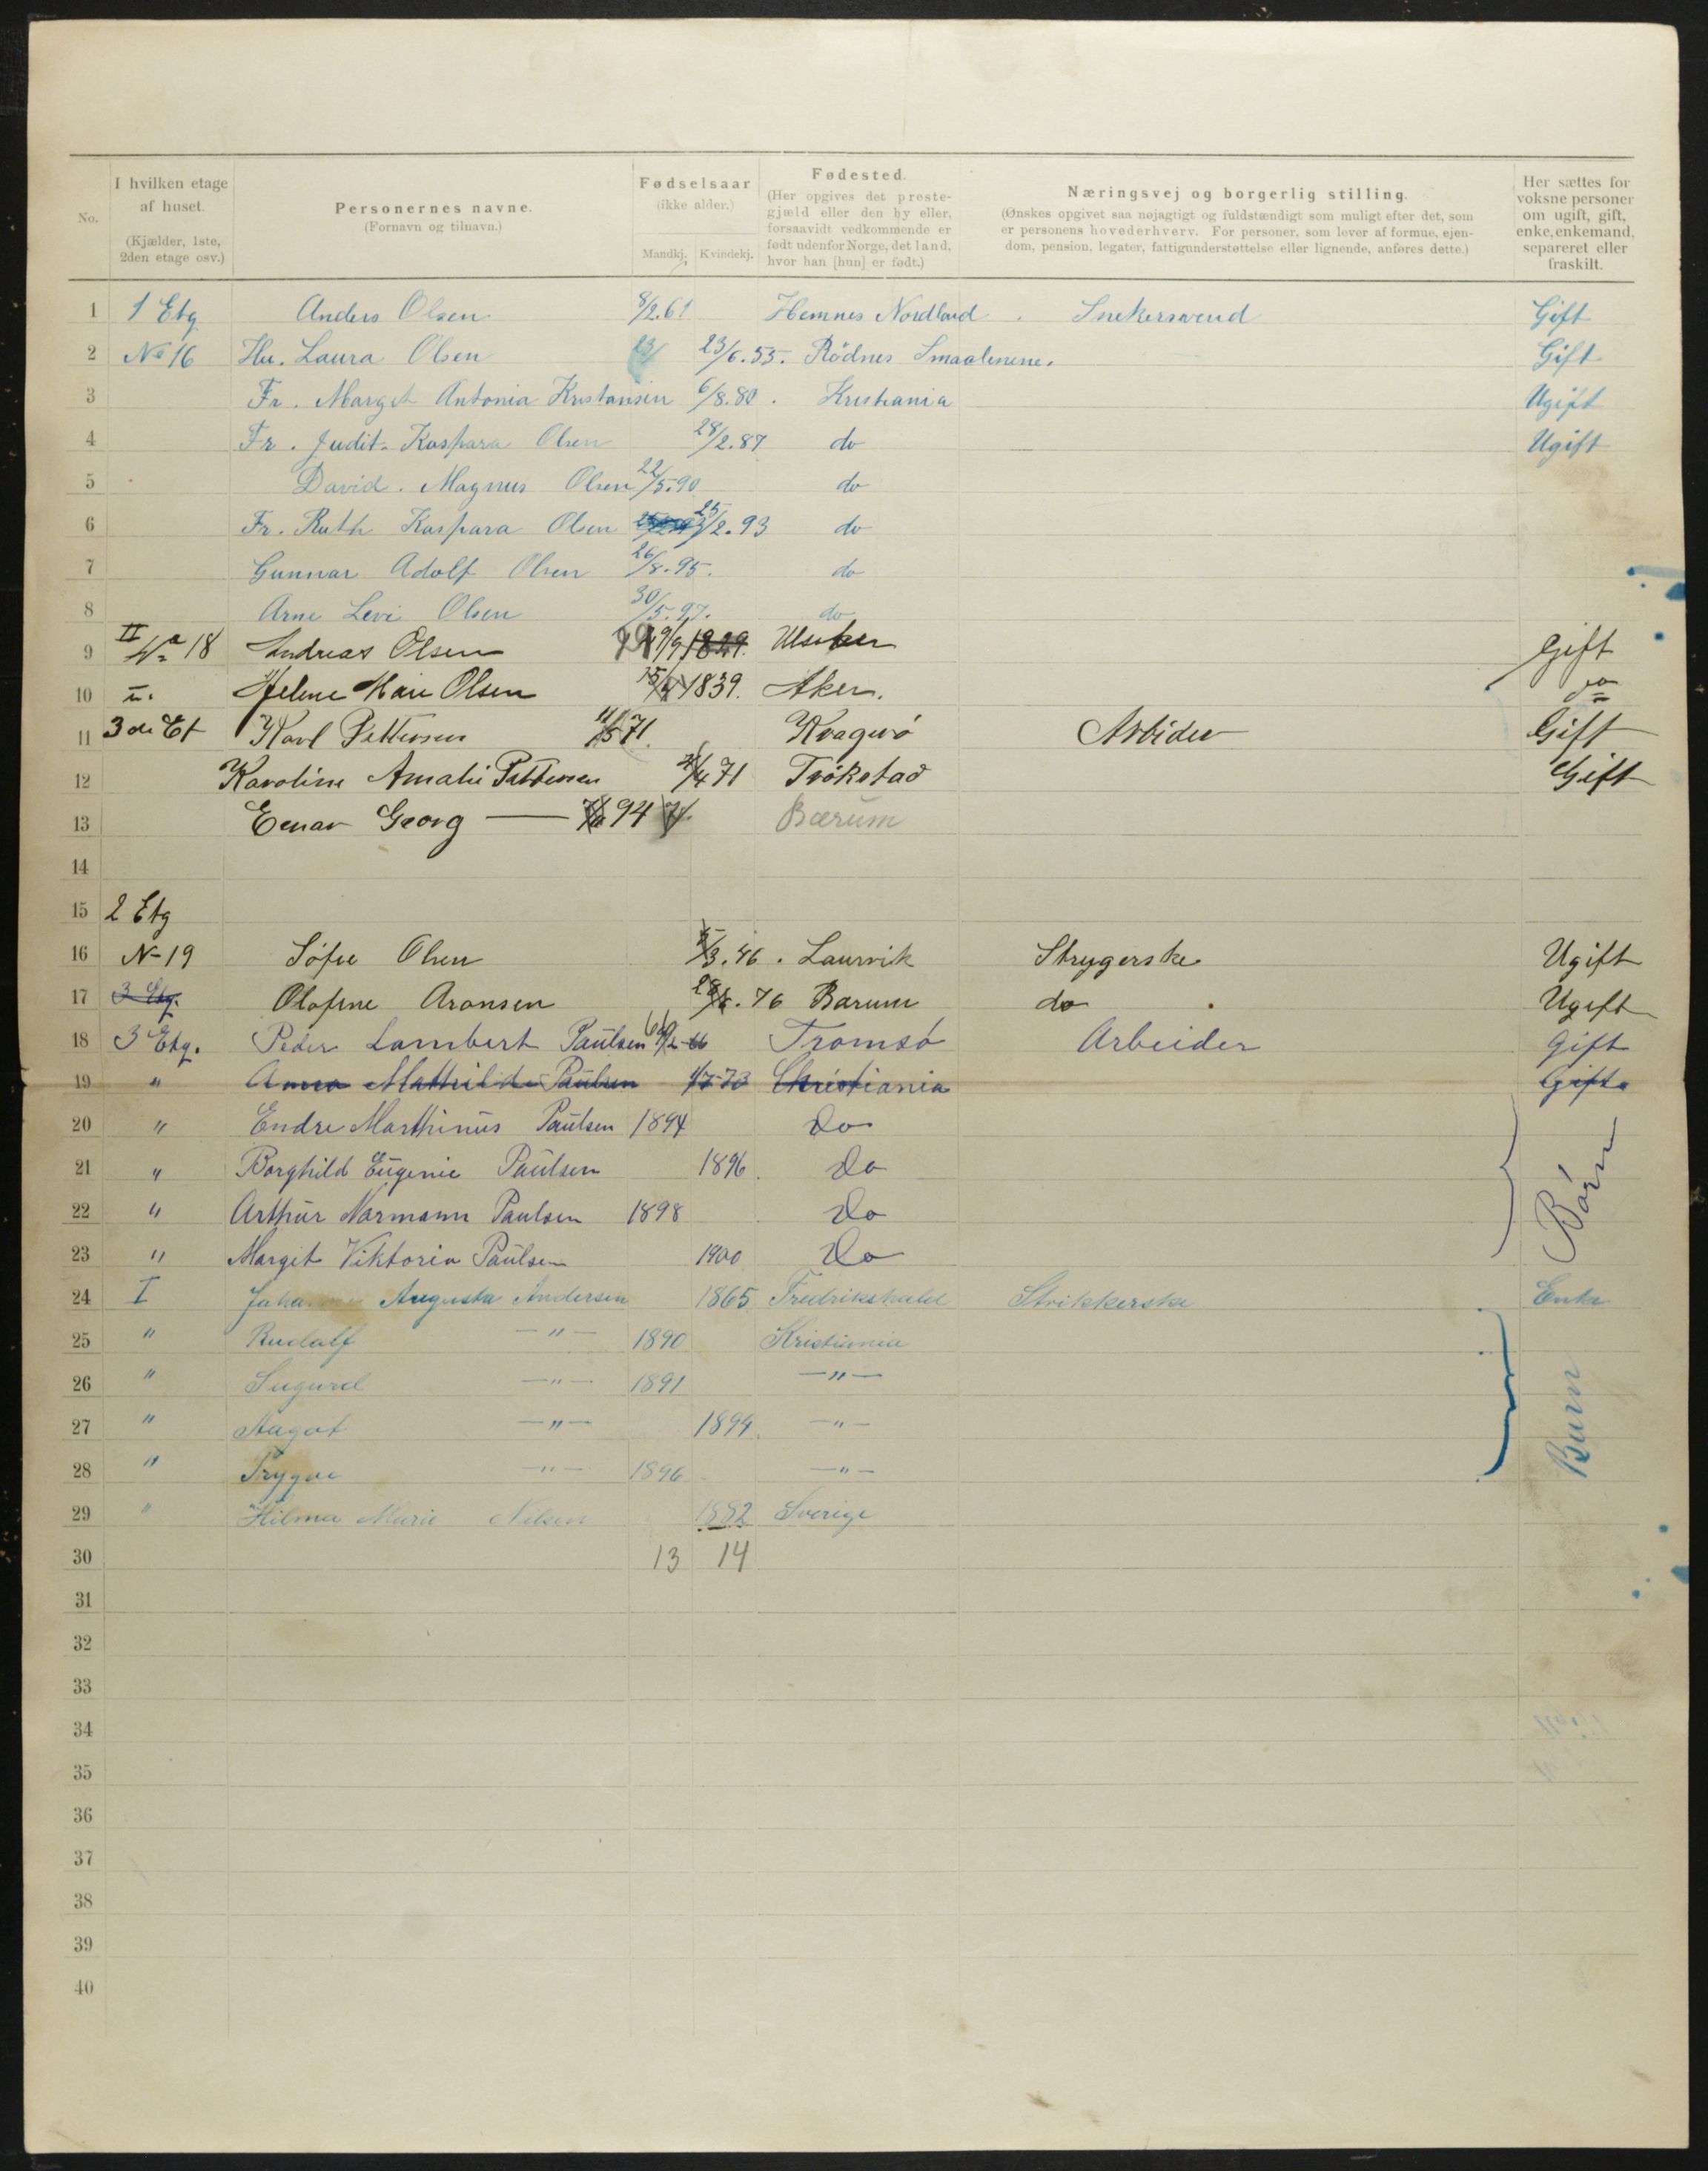 No. I hvilken etage af huset. (Kjælder, 1ste, 2den etage osv.) Personernes navne. (Fornavn og tilnavn.) Fødselsaar (ikke alder.) Mandkj. Kvindekj. Fødested. (Her opgives det prestegjæld eller den by eller, forsaavidt vedkommende er født udenfor Norge, det land, hvor han [hun] er født.) Næringsvej og borgerlig stilling. (Ønskes opgivet saa nøjagtigt og fuldstændigt som muligt efter det, som er personens hovederhverv. For personer, som lever af formue, ejendom, pension, legater, fattigunderstøttelse eller lignende, anføres dette.) Her sættes for voksne personer om ugift, gift, enke, enkemand, separeret eller fraskilt.
1 1 Etg Anders Olsen 8/2.61 Hemnes Nordland Snekersvend Gift
2 No 16 Hu. Laura Olsen 23/6.55. Rödnes Smaalenene. Gift
3 Fr. Margit Antonia Kristansen 6/8.80. Kristiania Ugift
4 Fr. Judit. Kaspara Olsen 28/2.87 do Ugift
5 David. Magnus Olsen 22/5.90 do
6 Fr. Ruth Kaspara Olsen 25/2.93 do
7 Gunnar Adolf Olsen 26/8.95. do
8 Arne Levi Olsen 30/5.97. do
9 II No 18 Andreas Olsen 29/9 1829. Gift
10 Helene Marie Olsen 15/4 1839. Aker. do
11 3de Et Karl Pettersen 11/5 71 Kragerö Arbider Gift
12 Karoline Amalie Pettersen /4 71 Trökstad Gift
13 Eenar Georg — 94 Bærum
14
15 2 Etg
16 N-19 Sofie Olsen 5/3.46. Laurvik Strygerske Ugift
17 3 Etg. Olofine Aronsen 28/8.76 Barum do Ugift
18 3 Etg. Peder Lambert Paulsen 66 Tromsö Arbeider Gift
19 " Anna Mathilde Paulsen 1/7-73 Christiania Gift
20 " Endre Marthinus Paulsen 1894 Do
21 " Borghild Eugenie Paulsen 1896. Do Börn
22 " Arthur Normann Paulsen 1898 Do
23 " Margit Viktoria Paulsen 1900 Do
24 I Johanne Augusta Andersen 1865 Fredrikshald Strikkerske Enke
25 " Rudolf —"— 1890 Kristiania
26 " Sugurd —"— 1891 —"—
27 " Aagot —"— 1894. —"— Burn
28 " Trygve —"— 1896 —"—
29 " Hilma Marie Nilsen 1882 Sverige
30 13 14
31
32
33
34
35
36
37
38
39
40